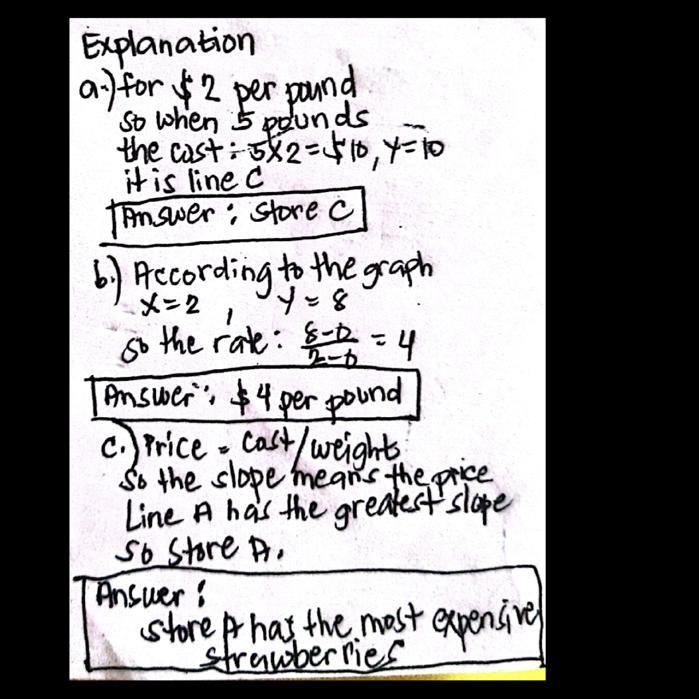 Explanation
a.) for $2 per pound
so when 5 pounds
the cost : 5x2=$10, y=10
it is line C
Answer : store C
b.) According to the graph
x=2 , y=8
so the rate: 8-0/2-0 = 4
Answer : $4 per pound
c.) Price = cost/weight
So the slope means the price
Line A has the greatest slope
So Store A.
Answer :
store A has the most expensive
strawberries